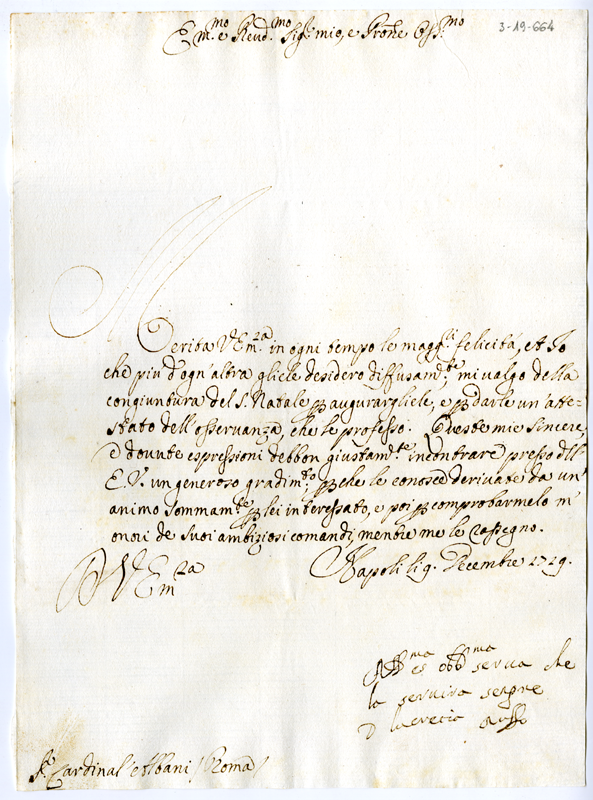 Em.mo e Reud.mo Sig.r mio, e Prone Oss.mo
3-19-664
Merita V Em.za in ogni tempo le magg.ri felicità, et Io
che piu d'ogn'altra gliele desidero diffusam.te, mi valgo della
congiuntura del S. Natale per augurarglieLe, e per darle un'atte-
stato dell'osseruanza, che le professo. Queste mie sincere,
e douute espressioni debbon giustam.te incontrare presso dell'
E. V. un generoso gradim.to, perche le conosce deriuate da un'
animo sommam.te per lei interessato, e poi per comprobarmelo m'
onori de suoi ambiziosi comandi, mentre me le rassegno.
Di V Em.za Napoli li 9. Decembre 1729.
ma ma
et obb serua che
la seruira sempre
D lucretia
S.r Cardinal' Albani / Roma /